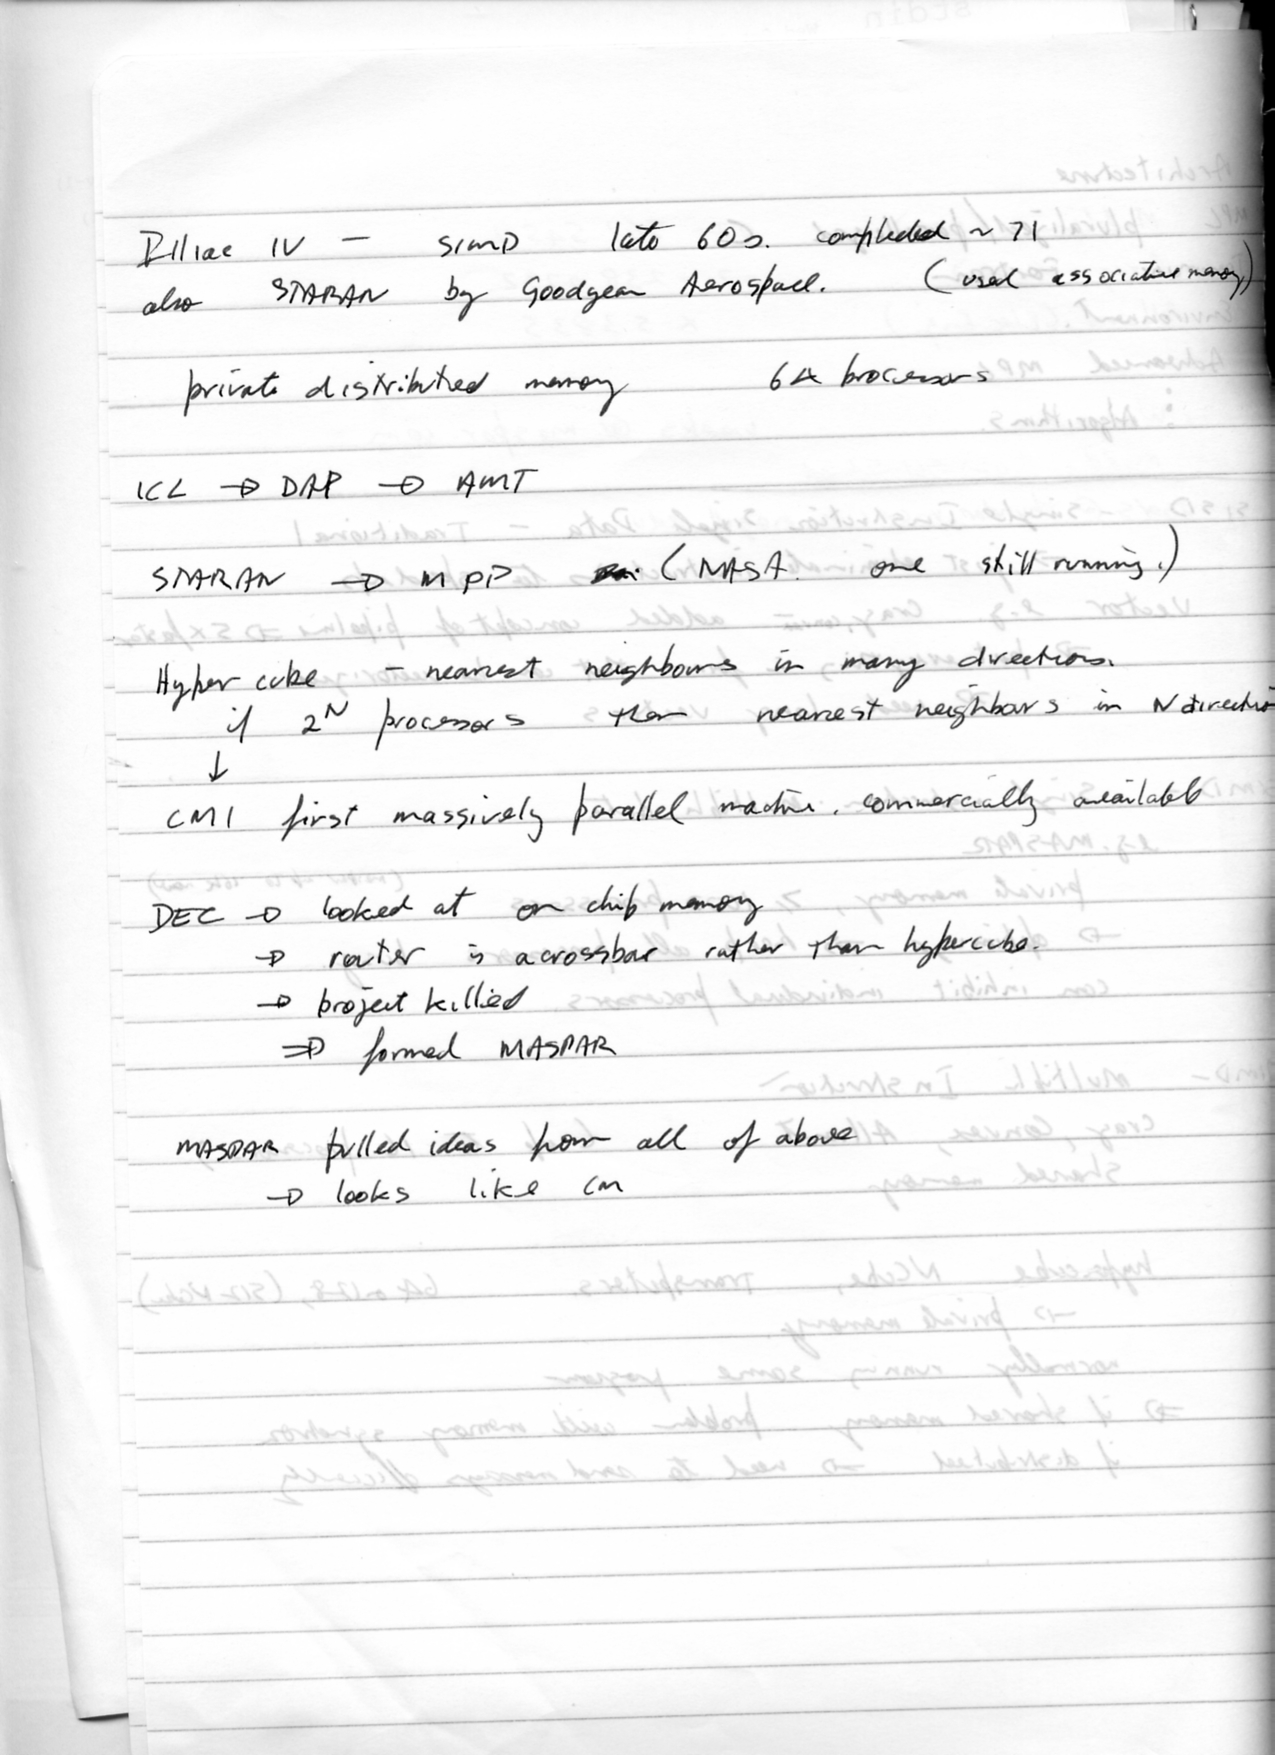 Illiac IV – SIMD late 60s. completed ~ 71
also STARAN by Goodyear Aerospace. (used associative memory)
private distributed memory 64 processors
ICL → DAP → AMT
STARAN → MPP (NASA. one still running.)
Hyper cube – nearest neighbours in many directions.
if 2^N processors then nearest neighbours in N directio
↓
CM1 first massively parallel machine. commercially available
DEC → looked at on chip memory
→ router is a crossbar rather than hypercube.
→ project killed
⇒ formed MASPAR
MASPAR pulled ideas from all of above
→ looks like CM